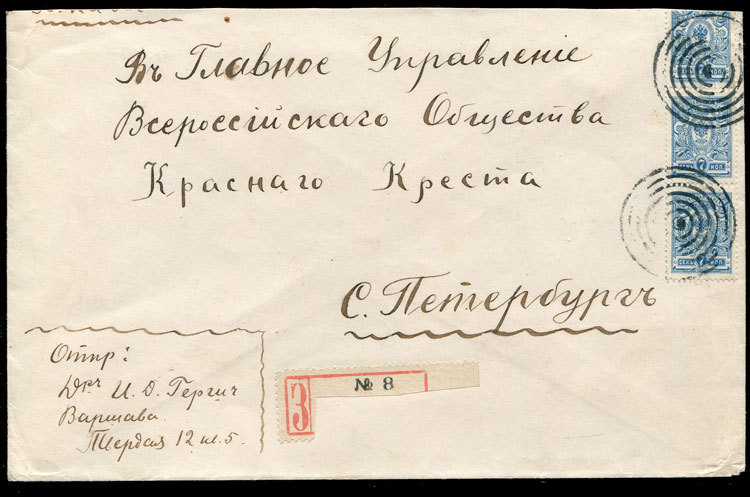 Въ Главное Управленіе
Всероссійскаго Общества
Краснаго Креста
С. Петербургъ
7
СЕМЬ КОП.
7
Отпр:
Дръ И. О. Гергич
Варшава
Твердая 12 кв. 5.
З
№ 8